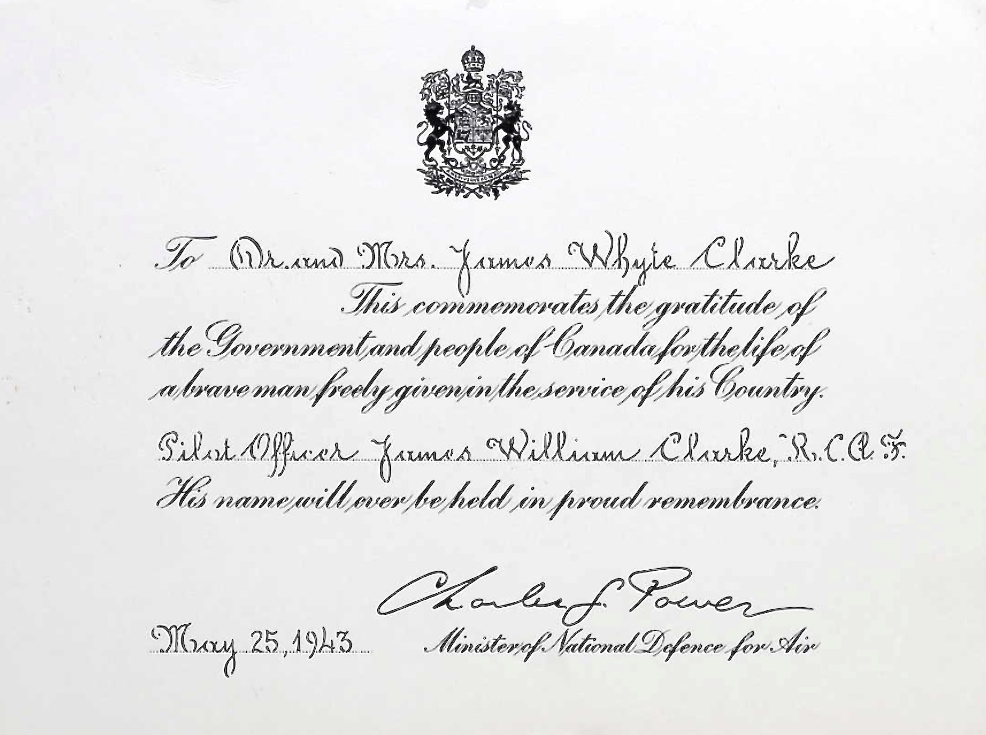 To Dr. and Mrs. James Whyte Clarke
This commemorates the gratitude of
the Government and people of Canada for the life of
a brave man freely given in the service of his Country.
Pilot Officer James William Clarke, R.C.A.F.
His name will ever be held in proud remembrance.
Charles G. Power
May 25, 1943 Minister of National Defence for Air